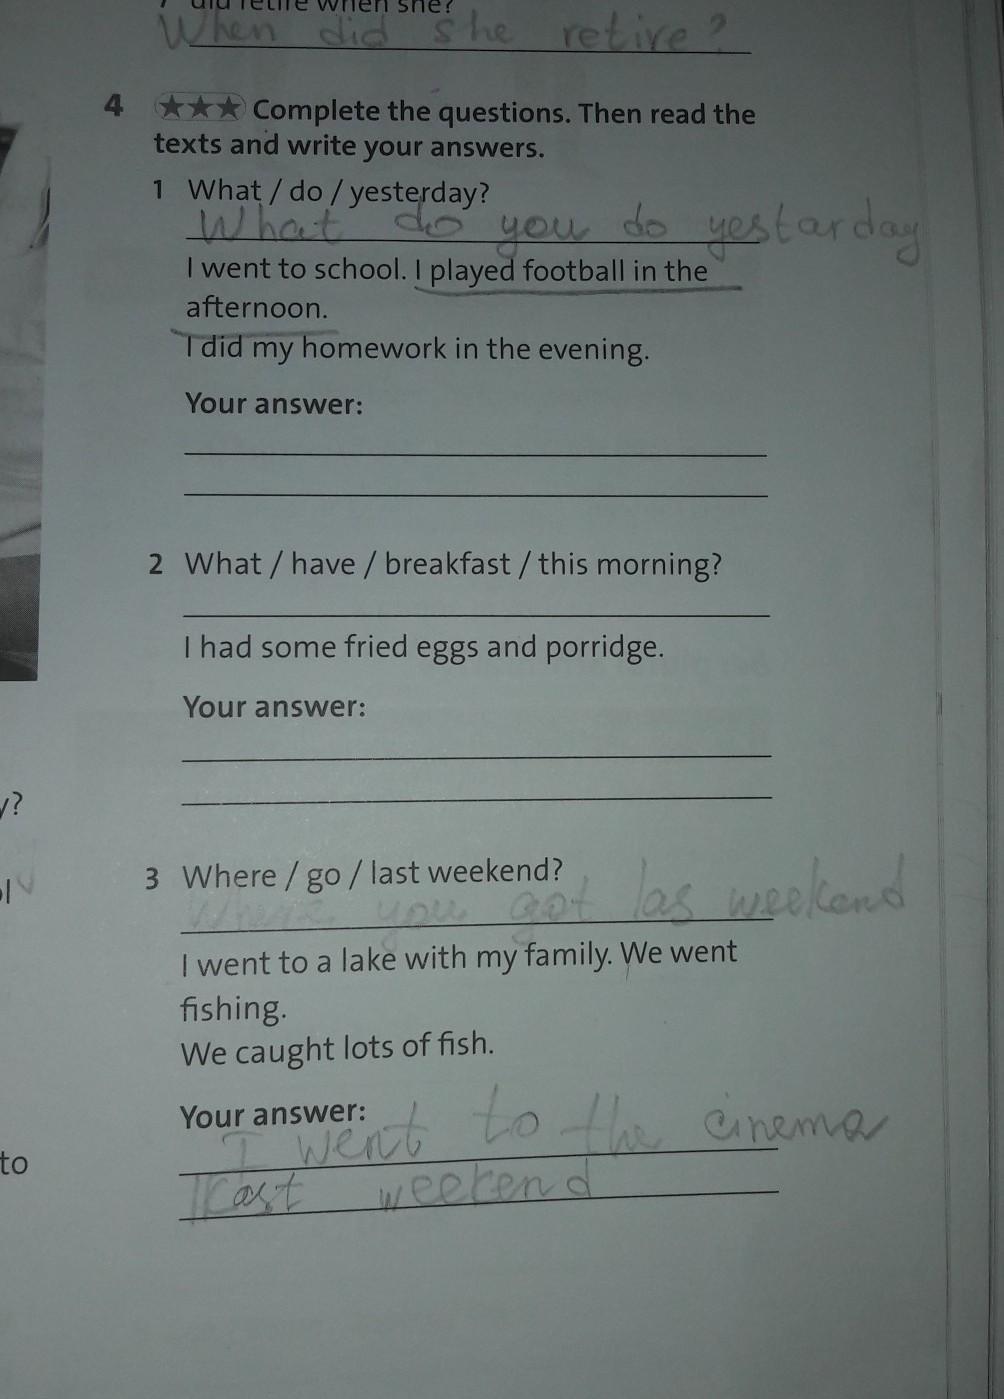 did retire when she?
When did she retire?
4 ★★★ Complete the questions. Then read the
texts and write your answers.
1 What / do / yesterday?
What do you do yestarday
I went to school. I played football in the
afternoon.
I did my homework in the evening.
Your answer:
2 What / have / breakfast / this morning?
I had some fried eggs and porridge.
Your answer:
y?
3 Where / go / last weekend?
Where you got las weekend
I went to a lake with my family. We went
fishing.
We caught lots of fish.
Your answer:
I went to the cinema
to
last weekend